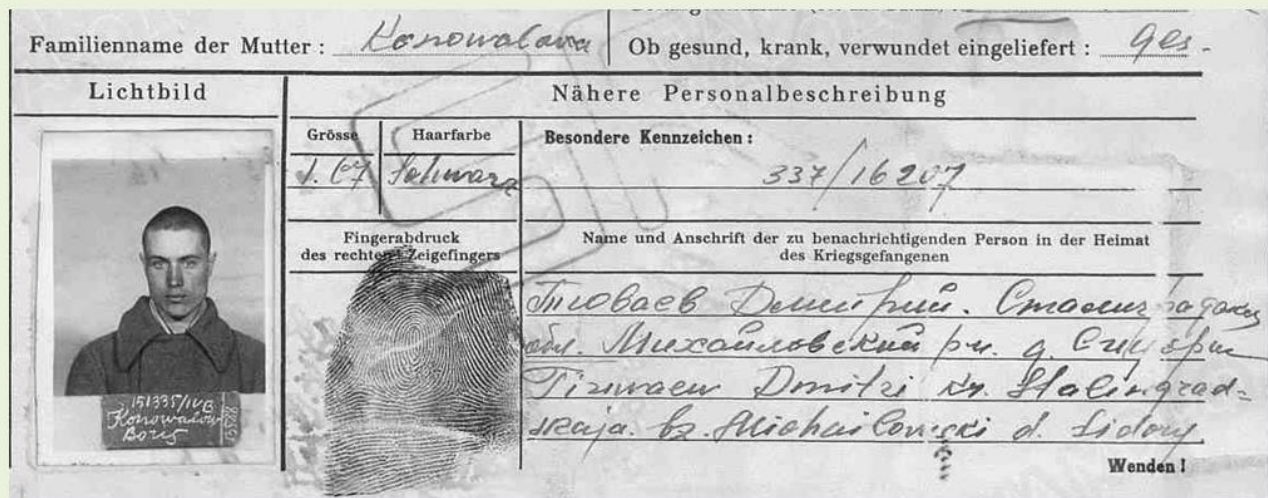 Familienname der Mutter : Konowalowa
Ob gesund, krank, verwundet eingeliefert : ges.
Lichtbild
Nähere Personalbeschreibung
Grösse
Haarfarbe
Besondere Kennzeichen :
1.67
Schwarz
337/16207
Fingerabdruck
des rechten Zeigefingers
Name und Anschrift der zu benachrichtigenden Person in der Heimat
des Kriegsgefangenen
Дмитрий.
обл. Михайловский рн. д.
Dmitri Stalingrad=
skaja. bz. d. Sidory
151335/IVB
Konowalow
Boris
Wenden !